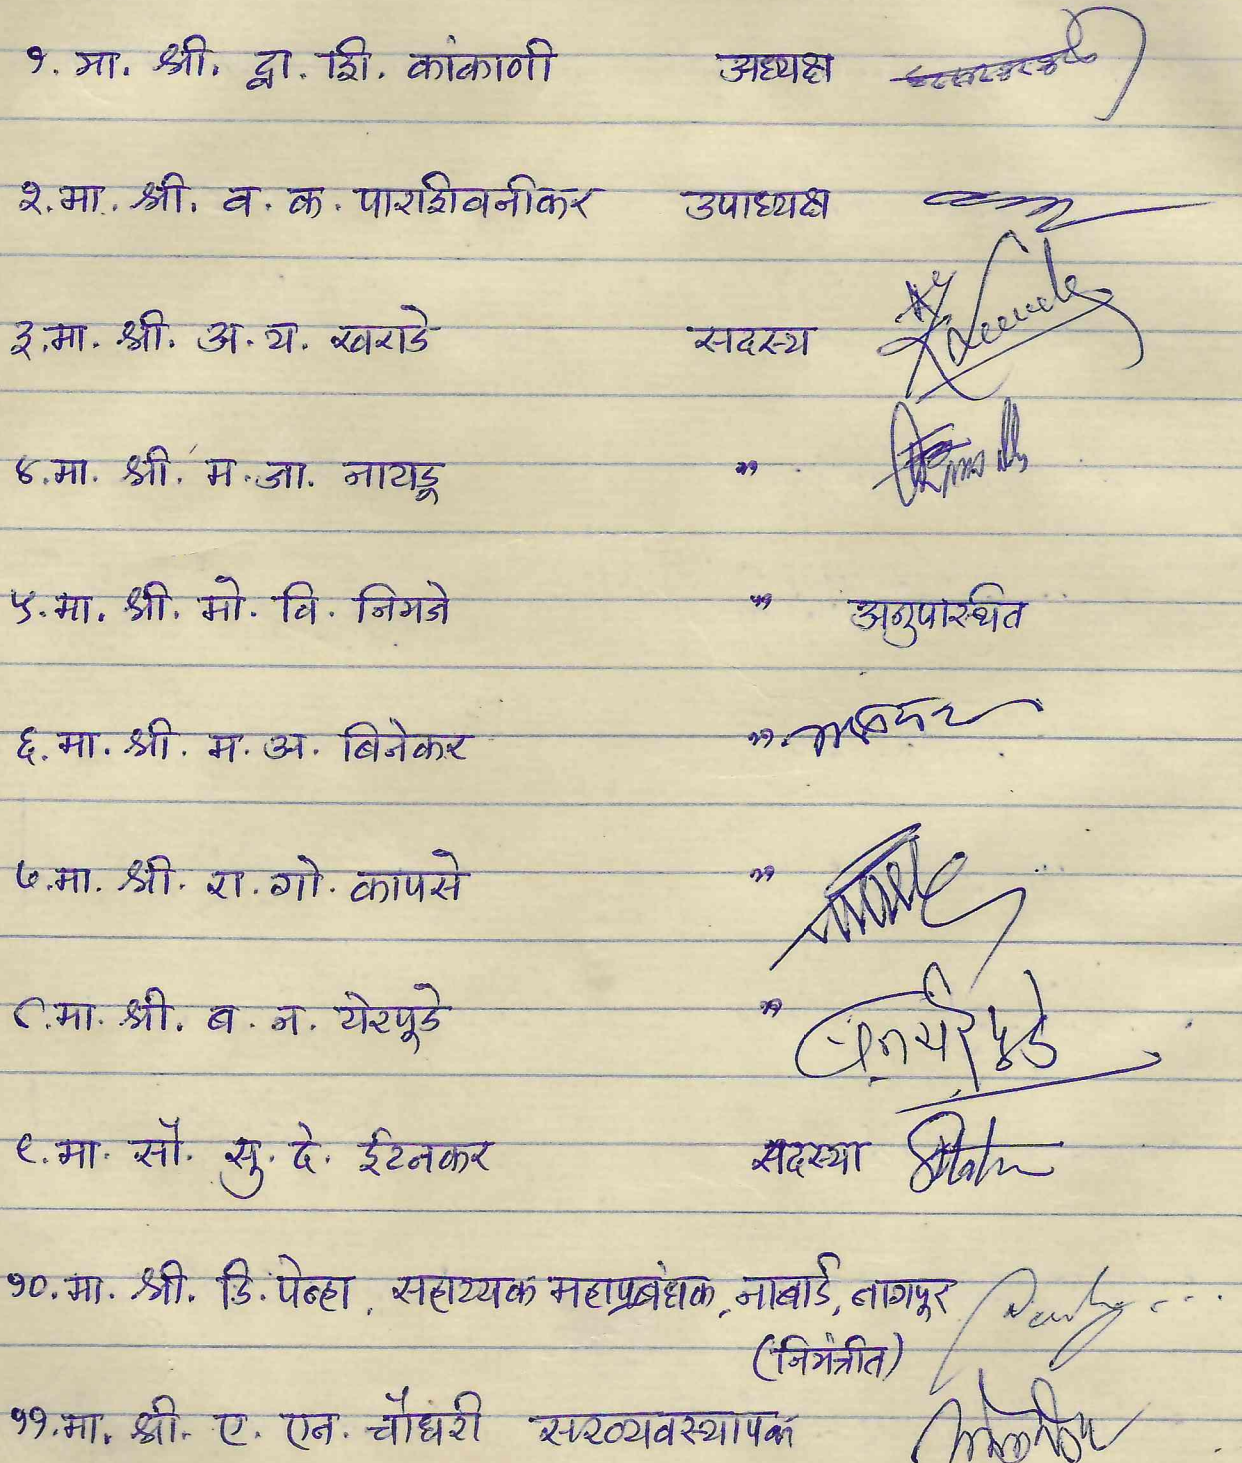 १. मा. श्री. द्वा. शि. कांकाणी अध्यक्ष
२. मा. श्री. व. क. पाराशिवनीकर उपाध्यक्ष
३. मा. श्री. अ. य. खराडे सदस्य
४. मा. श्री. म. जा. नायडू "
५. मा. श्री. मो. वि. निमजे " अनुपास्थित
६. मा. श्री. म. अ. बिनेकर "
७. मा. श्री. रा. गो. कापसे "
८. मा. श्री. ब. न. येरपूडे " येरपूडे
९. मा. सौ. सु. दे. ईटनकर सदस्या
१०. मा. श्री. डि. पेन्हा, सहाय्यक महाप्रबंधक, नाबार्ड, नागपूर
(निमंत्रीत)
११. मा. श्री. ए. एन. चौधरी सरव्यवस्थापक